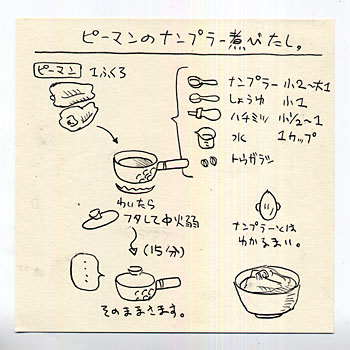 ピーマンのナンプラー煮びたし。
ピーマン 1ふくろ
ナンプラー 小2〜大1
しょうゆ 小1
ハチミツ 小1/2〜1
水 1カップ
トウガラシ
わいたら
フタして中火弱
(15分)
...
そのままさます。
ナンプラーとは
わかるまい。